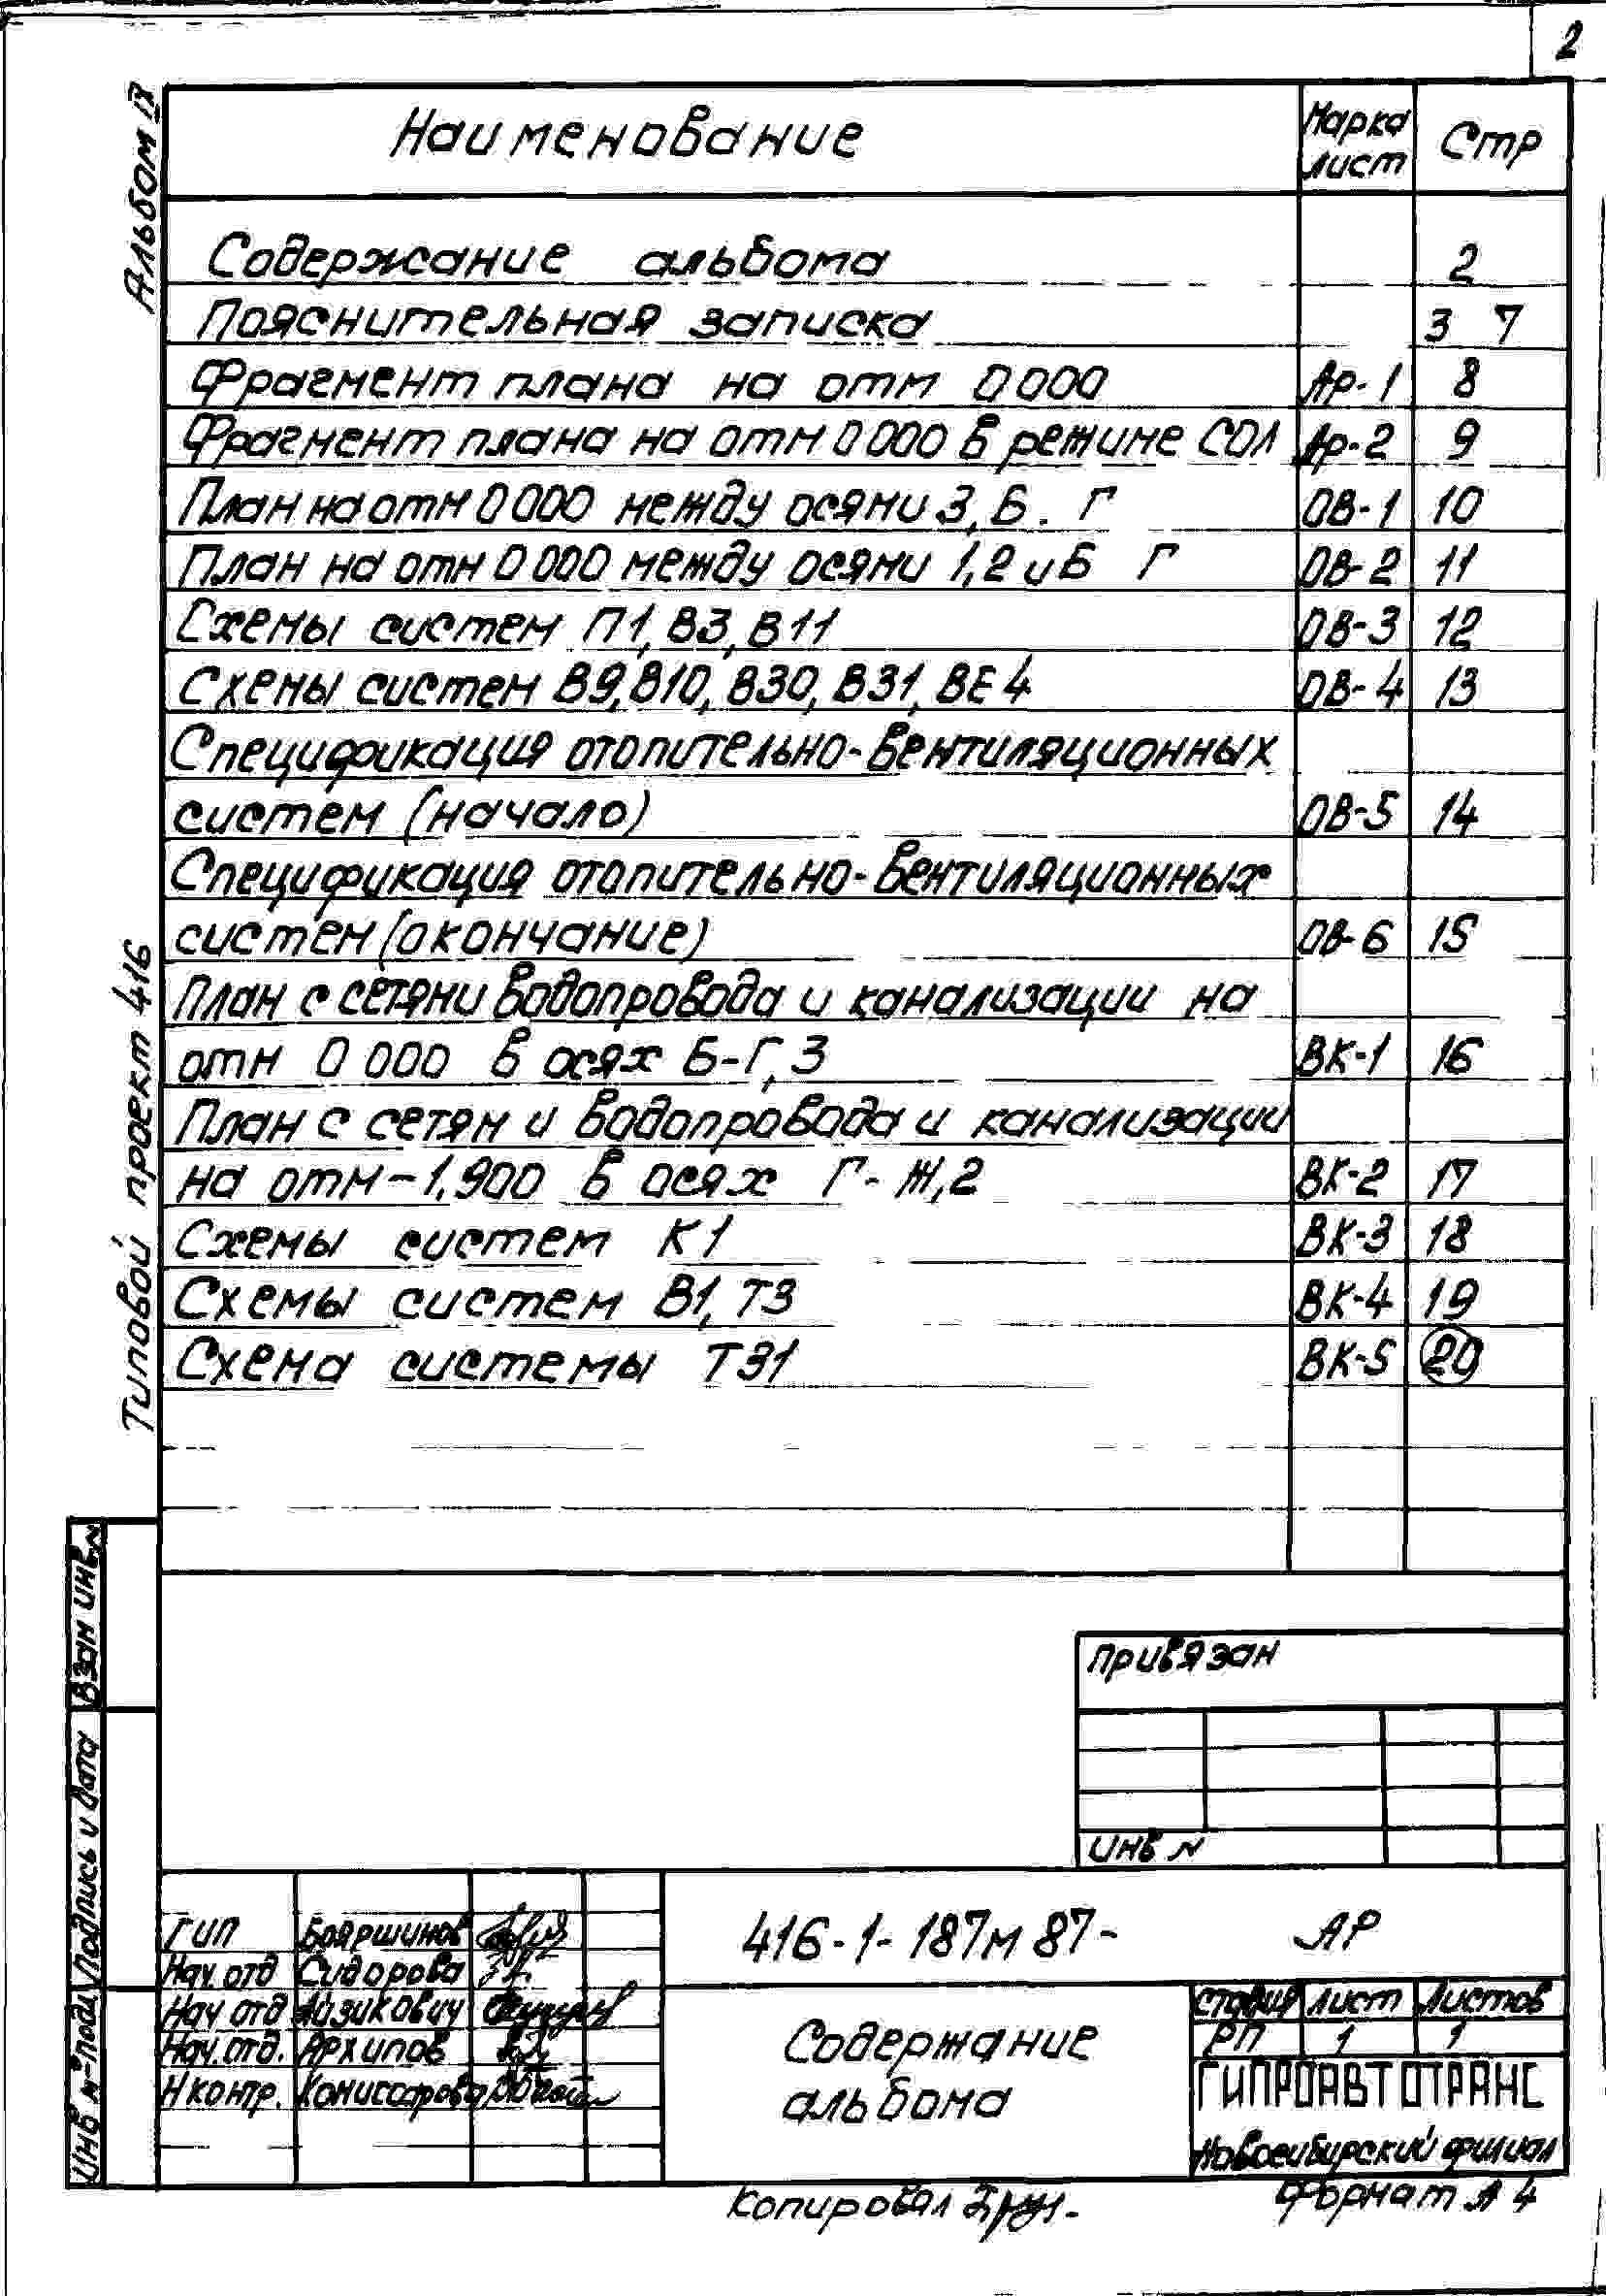 2
Альбом IX
Наименование Марка лист Стр
Содержание альбома 2
Пояснительная записка 3 7
Фрагмент плана на отм 0 000 Ар-1 8
Фрагмент плана на отм 0 000 в режиме СОЛ Ар-2 9
План на отм 0 000 между осями 3, Б . Г ОВ-1 10
План на отм 0 000 между осями 1,2 и Б Г ОВ-2 11
Схемы систем П1, В3, В11 ОВ-3 12
Схемы систем В9, В10, В30, В31, ВЕ4 ОВ-4 13
Спецификация отопительно-вентиляционных
систем (начало) ОВ-5 14
Спецификация отопительно-вентиляционных
систем (окончание) ОВ-6 15
План с сетями водопровода и канализации на
отм 0 000 в осях Б-Г, 3 ВК-1 16
План с сетям и водопровода и канализации
на отм -1,900 в осях Г- Ж,2 ВК-2 17
Схемы систем К1 ВК-3 18
Схемы систем В1, Т3 ВК-4 19
Схема системы Т31 ВК-5 20
Типовой проект 416
Взам инв N
Подпись и дата
Инв N подл
Привязан
Инв N
ГИП Бояршинов
Нач. отд Сидорова
Нач отд Айзикович
Нач. отд. Архипов
Н контр. Комиссарова
416-1-187м 87- АР
Содержание
альбома
Стадия Лист Листов
РП 1 1
ГИПРОАВТОТРАНС
Новосибирский филиал
Копировал
Формат А4